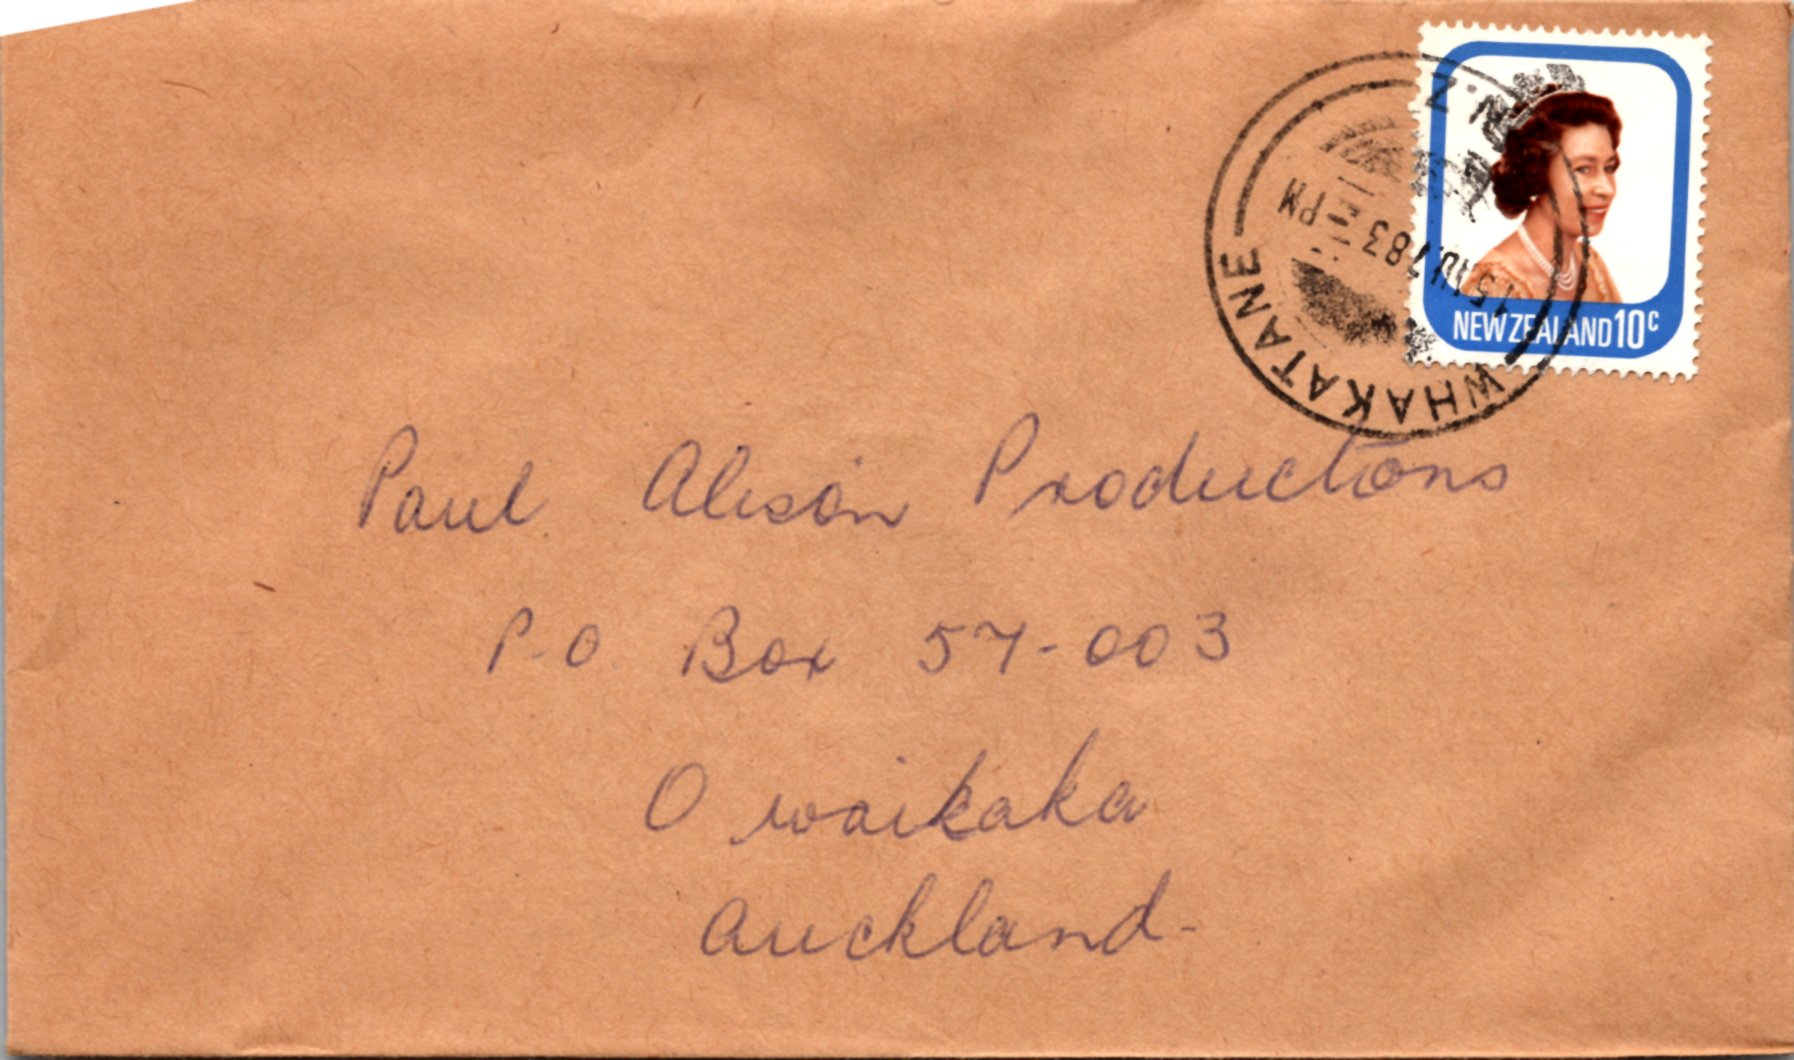 N.Z.
PM
83
WHAKATANE
NEW ZEALAND 10c
Paul Alison Productions
P.O. Box 57-003
Owaikaka
Auckland.